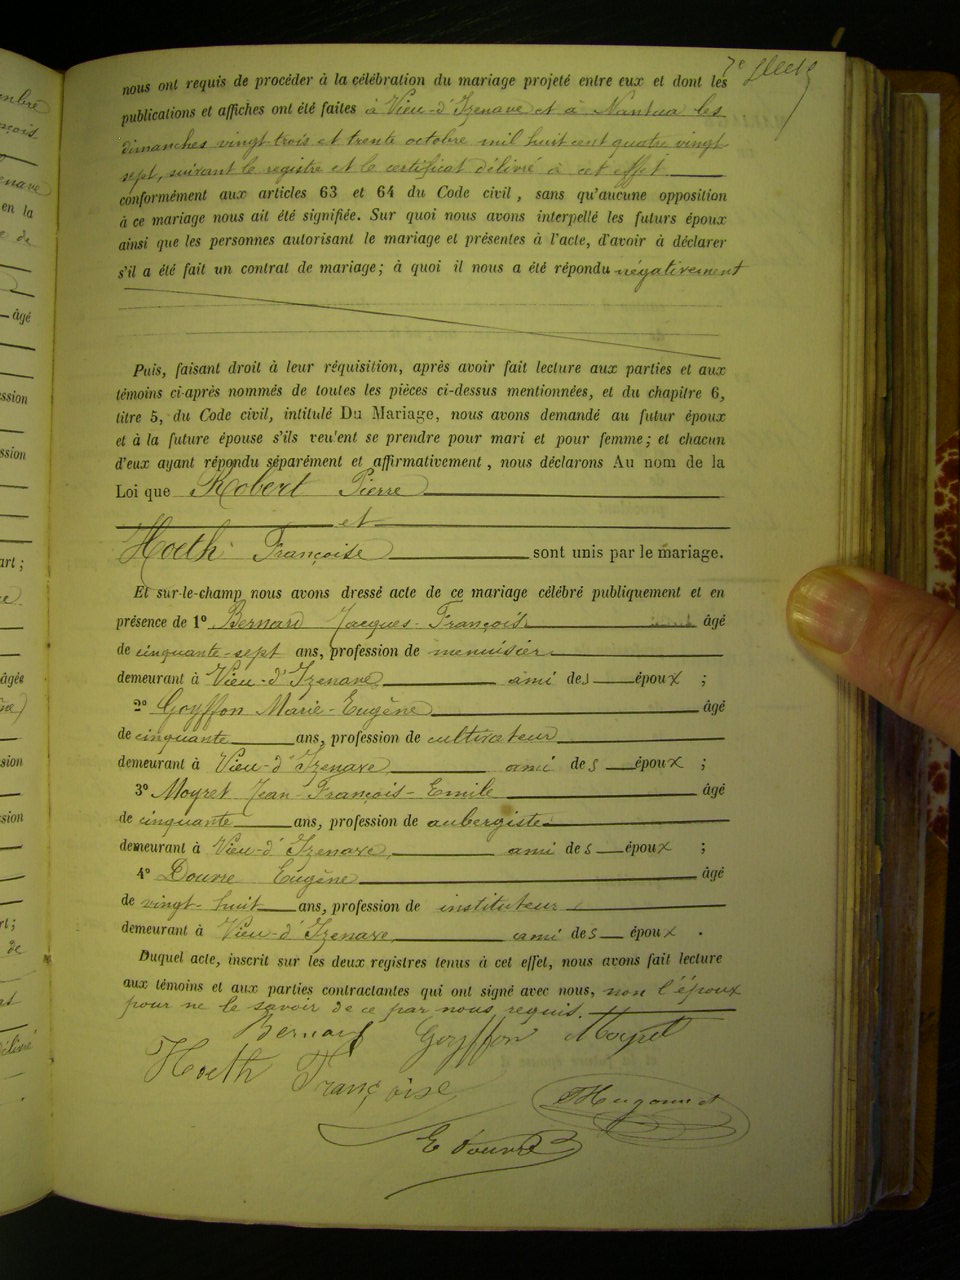 nous ont requis de procéder à la célébration du mariage projeté entre eux et dont les
publications et affiches ont été faites à Vieu-d'Izenave et à Nantua les
dimanches vingt trois et trente octobre mil huit cent quatre vingt
sept, suivant le registre et le certificat délivré à cet effet
conformément aux articles 63 et 64 du Code civil, sans qu'aucune opposition
à ce mariage nous ait été signifiée. Sur quoi nous avons interpellé les futurs époux
ainsi que les personnes autorisant le mariage et présentes à l'acte, d'avoir à déclarer
s'il a été fait un contrat de mariage; à quoi il nous a été répondu négativement
Puis, faisant droit à leur réquisition, après avoir fait lecture aux parties et aux
témoins ci-après nommés de toutes les pièces ci-dessus mentionnées, et du chapitre 6,
titre 5, du Code civil, intitulé Du Mariage, nous avons demandé au futur époux
et à la future épouse s'ils veulent se prendre pour mari et pour femme; et chacun
d'eux ayant répondu séparément et affirmativement, nous déclarons Au nom de la
Loi que Robert Pierre
et
Hoeth Françoise sont unis par le mariage.
Et sur-le-champ nous avons dressé acte de ce mariage célébré publiquement et en
présence de 1° Bernard Jacques-François âgé
de cinquante-sept ans, profession de menuisier
demeurant à Vieu-d'Izenave ami des époux ;
2° Goyffon Marie-Eugène âgé
de cinquante ans, profession de cultivateur
demeurant à Vieu-d'Izenave ami des époux ;
3° Moyret Jean-François-Emile âgé
de cinquante ans, profession de aubergiste
demeurant à Vieu-d'Izenave, ami des époux ;
4° Douvre Eugène âgé
de vingt-huit ans, profession de instituteur
demeurant à Vieu-d'Izenave, ami des époux .
Duquel acte, inscrit sur les deux registres tenus à cet effet, nous avons fait lecture
aux témoins et aux parties contractantes qui ont signé avec nous, non l'époux
pour ne le savoir de ce par nous requis.
Bernard Goyffon Moyret
Hoeth Françoise
Hugonnet
E Douvre